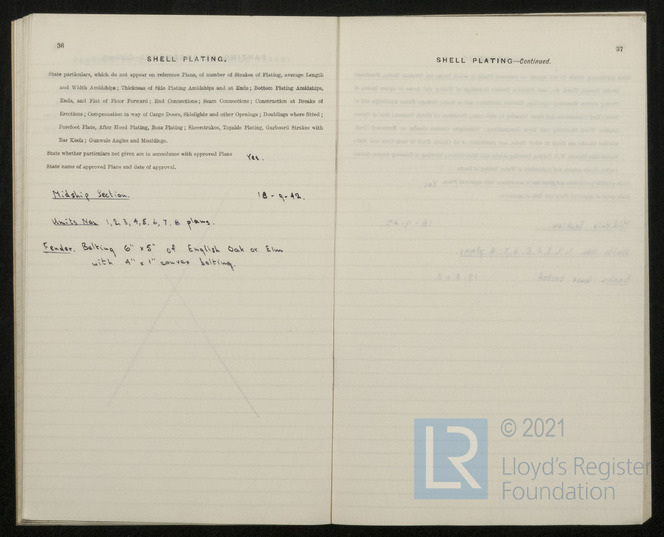 36
SHELL PLATING.
State particulars, which do not appear on reference Plans, of number of Strakes of Plating, average Length
and Width Amidships; Thickness of Side Plating Amidships and at Ends; Bottom Plating Amidships,
Ends, and Flat of Floor Forward; End Connections; Seam Connections; Construction at Breaks of
Erections; Compensation in way of Cargo Doors, Skidlights and other Openings; Doublings where fitted;
Forefoot Plate, After Hood Plating, Boss Plating; Sheerstrakes, Topside Plating, Garboard Strakes with
Bar Keels; Gunwale Angles and Mouldings.
State whether particulars not given are in accordance with approved Plans Yes.
State name of approved Plans and date of approval.
Midship Section. 18-9-42.
Units Nos 1, 2, 3, 4, 5, 6, 7, 8 plans.
Fender. Belting 6" x 5" of English Oak or Elm
with 4" x 1" convex belting.
37
SHELL PLATING—Continued.
LR
© 2021
Lloyd's Register
Foundation